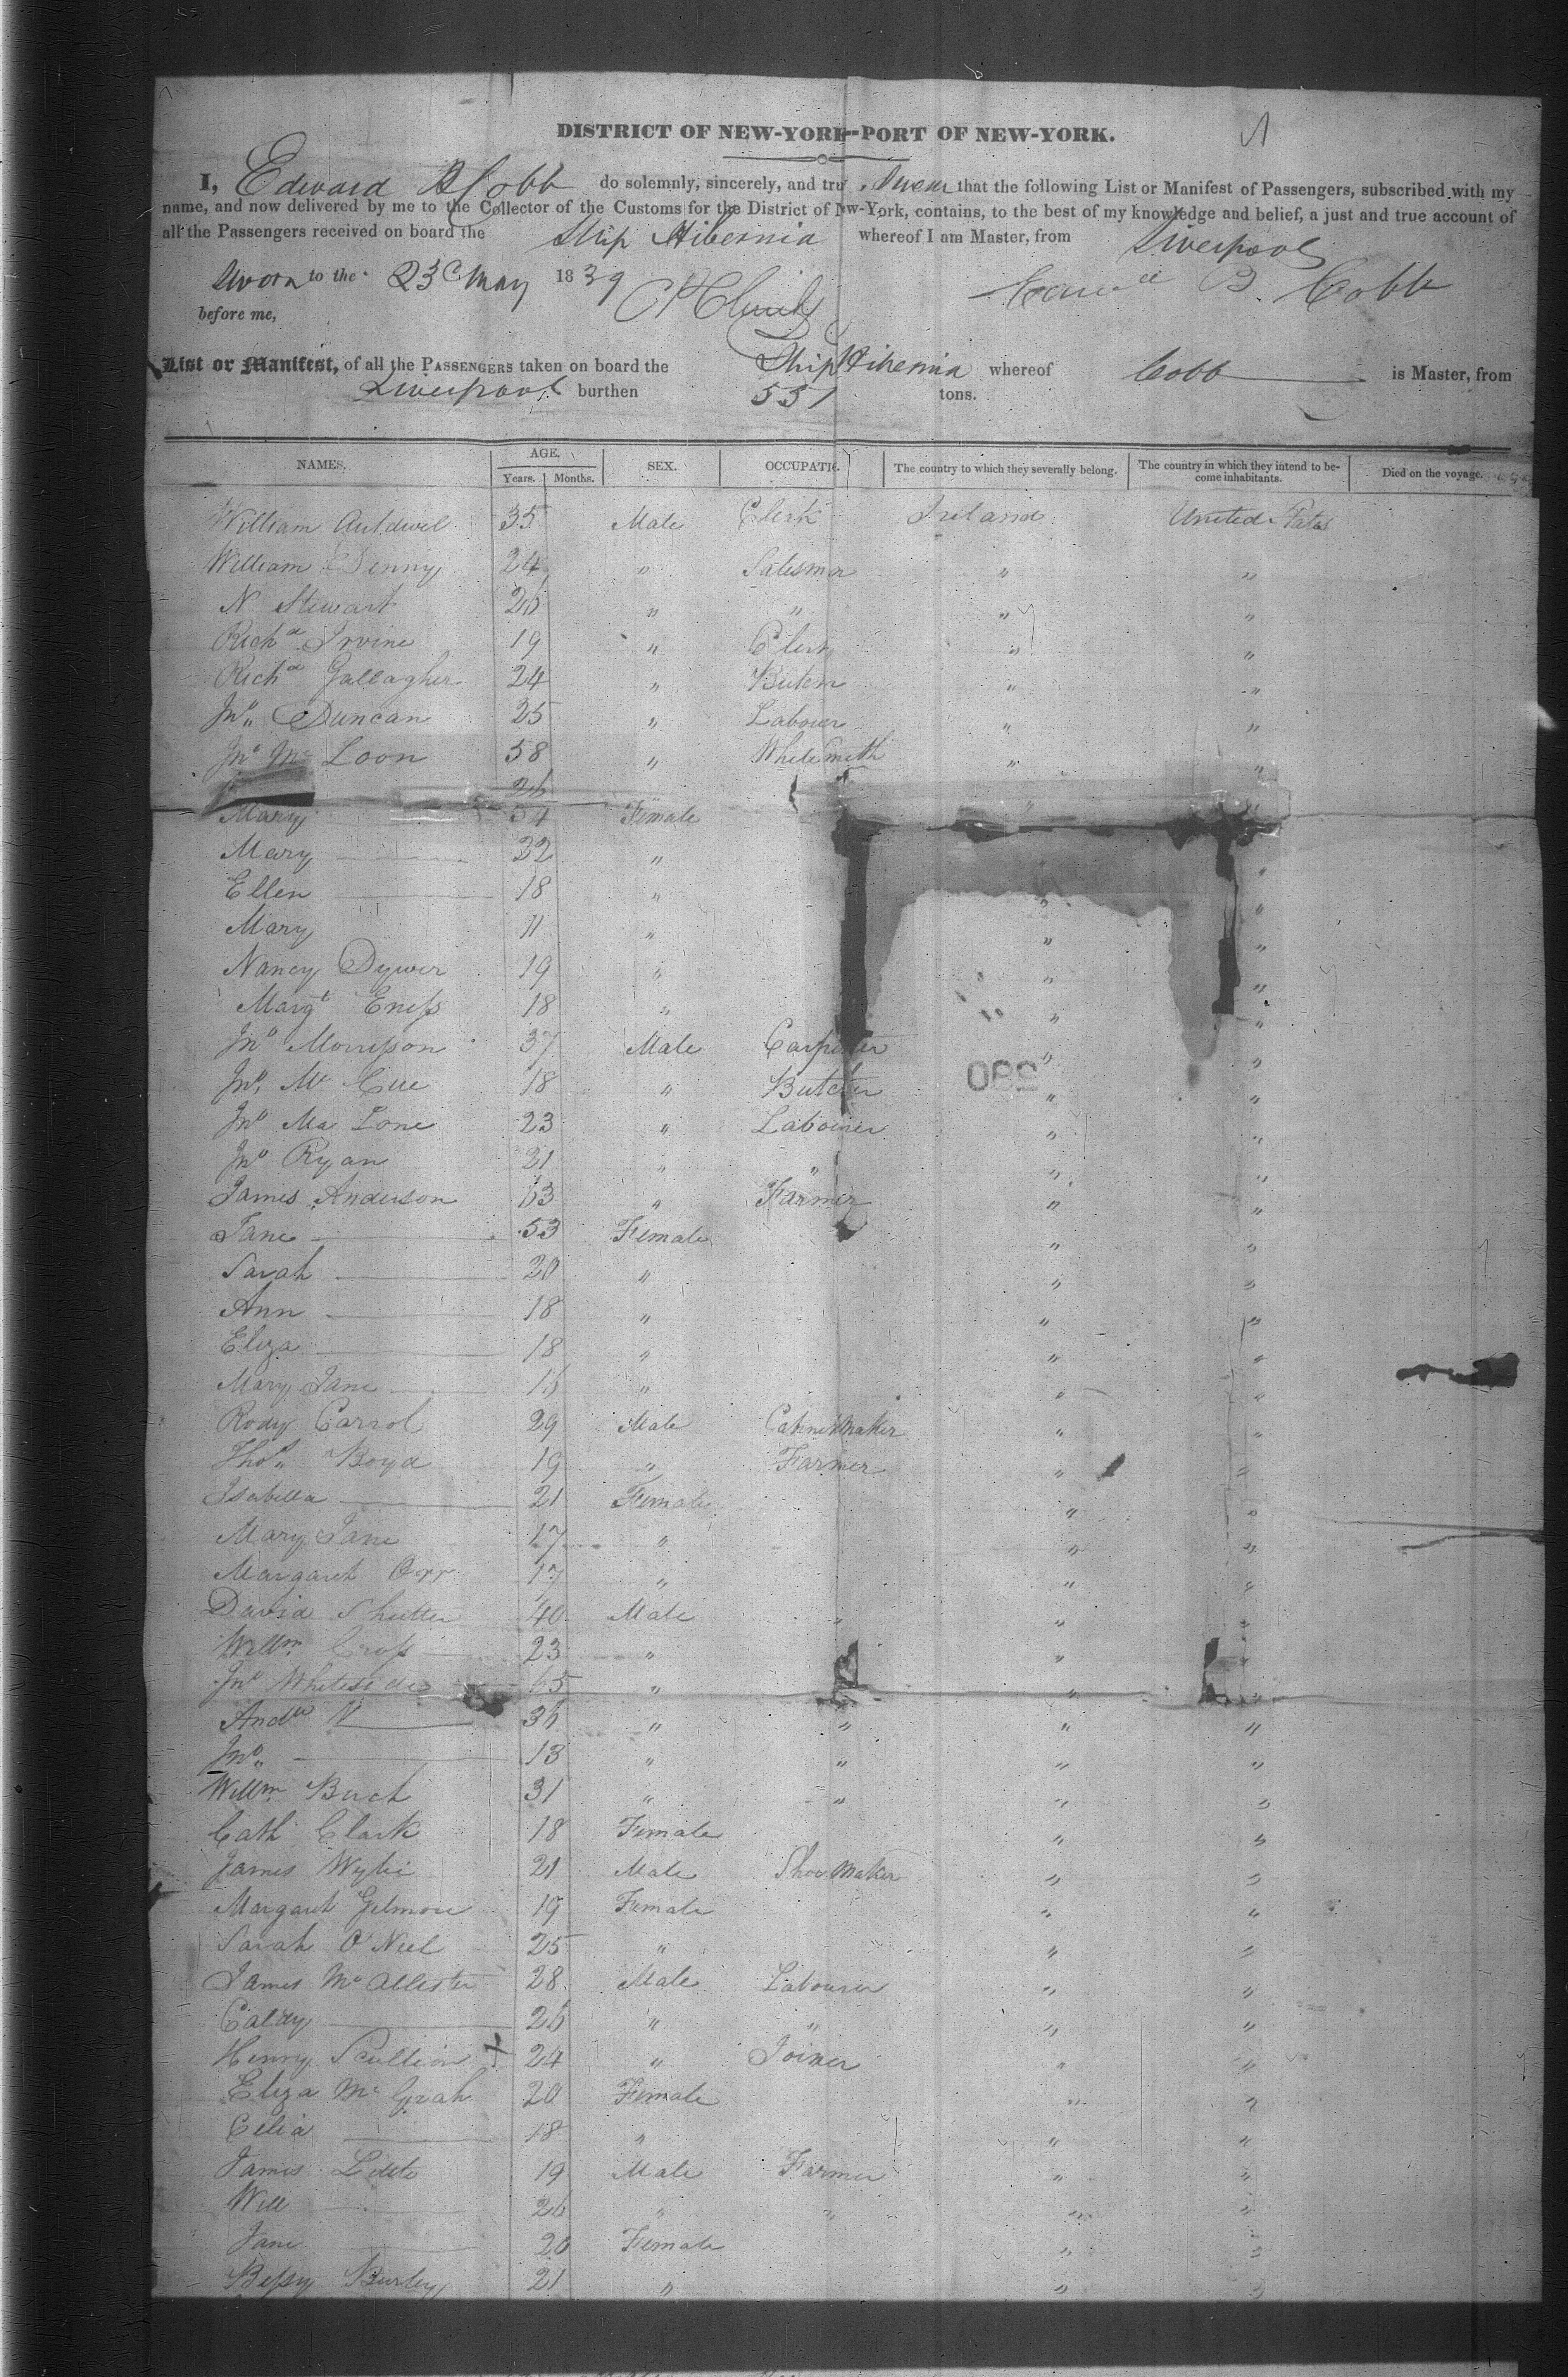 DISTRICT OF NEW-YORK--PORT OF NEW-YORK.
I, Edward B Cobb do solemnly, sincerely, and tru Swear that the following List or Manifest of Passengers, subscribed with my
name, and now delivered by me to the Collector of the Customs for the District of New-York, contains, to the best of my knowledge and belief, a just and true account of
all the Passengers received on board the Ship Hibernia whereof I am Master, from Liverpool
Sworn to the 23d May 1839
before me, B. Cobb
List or Manifest, of all the PASSENGERS taken on board the Ship Hibernia whereof Cobb is Master, from
Liverpool burthen 551 tons.
NAMES. AGE. Years. Months. SEX. OCCUPATIO. The country to which they severally belong. The country in which they intend to become inhabitants. Died on the voyage.
William Auldwel 35 Male Clerk Ireland United States
William Denny 24 " Salesman " "
N. Stewart 26 " " " "
Richd Irvine 19 " Clerk " "
Richd Gallagher 24 " " "
Jno Duncan 25 " Labour " "
Jno Mc Loon 58 " White Smith " "
26 " "
Mary 54 Female
Mary 32 " "
Ellen 18 " " "
Mary 11 " " "
Nancy Dywer 19 " " "
Margt Eness 18 " " "
Jno Morrisson 37 Male Carpenter " "
Jno Mc Cue 18 " Butcher " "
Jno Ma Lone 23 " Labourer " "
Jno Ryan 21 " " " "
James Anderson 63 " Farmer " "
Jane 53 Female " "
Sarah 20 " " "
Ann 18 " " "
Eliza 18 " " "
Mary Jane 16 " " "
Rody Carrol 29 Male Cabinet Maker " "
Thos Boyd 19 " Farmer " "
Isabella 21 Female " "
Mary Jane 17 " " "
Margaret Orr 17 " " "
David Shutter 40 Male " " "
Willm Cross 23 " " "
Jno Whiteside 65 " " "
Andw W 36 " " " "
Jno 13 " " " "
Willm Burch 31 " " " "
Cath Clark 18 Female " "
James Wylie 21 Male Shoe Maker " "
Margaret Gilmore 19 Female " "
Sarah O'Niel 25 " " "
James Mc Allister 28 Male Labourer " "
Caldy 26 " " " "
Henry Scullion + 24 " Joiner " "
Eliza Mc Grah 20 Female " "
Celia 18 " " "
James 19 Male Farmer " "
Will 26 " " " "
Jane 20 Female " "
Bessy Burley 21 " " "